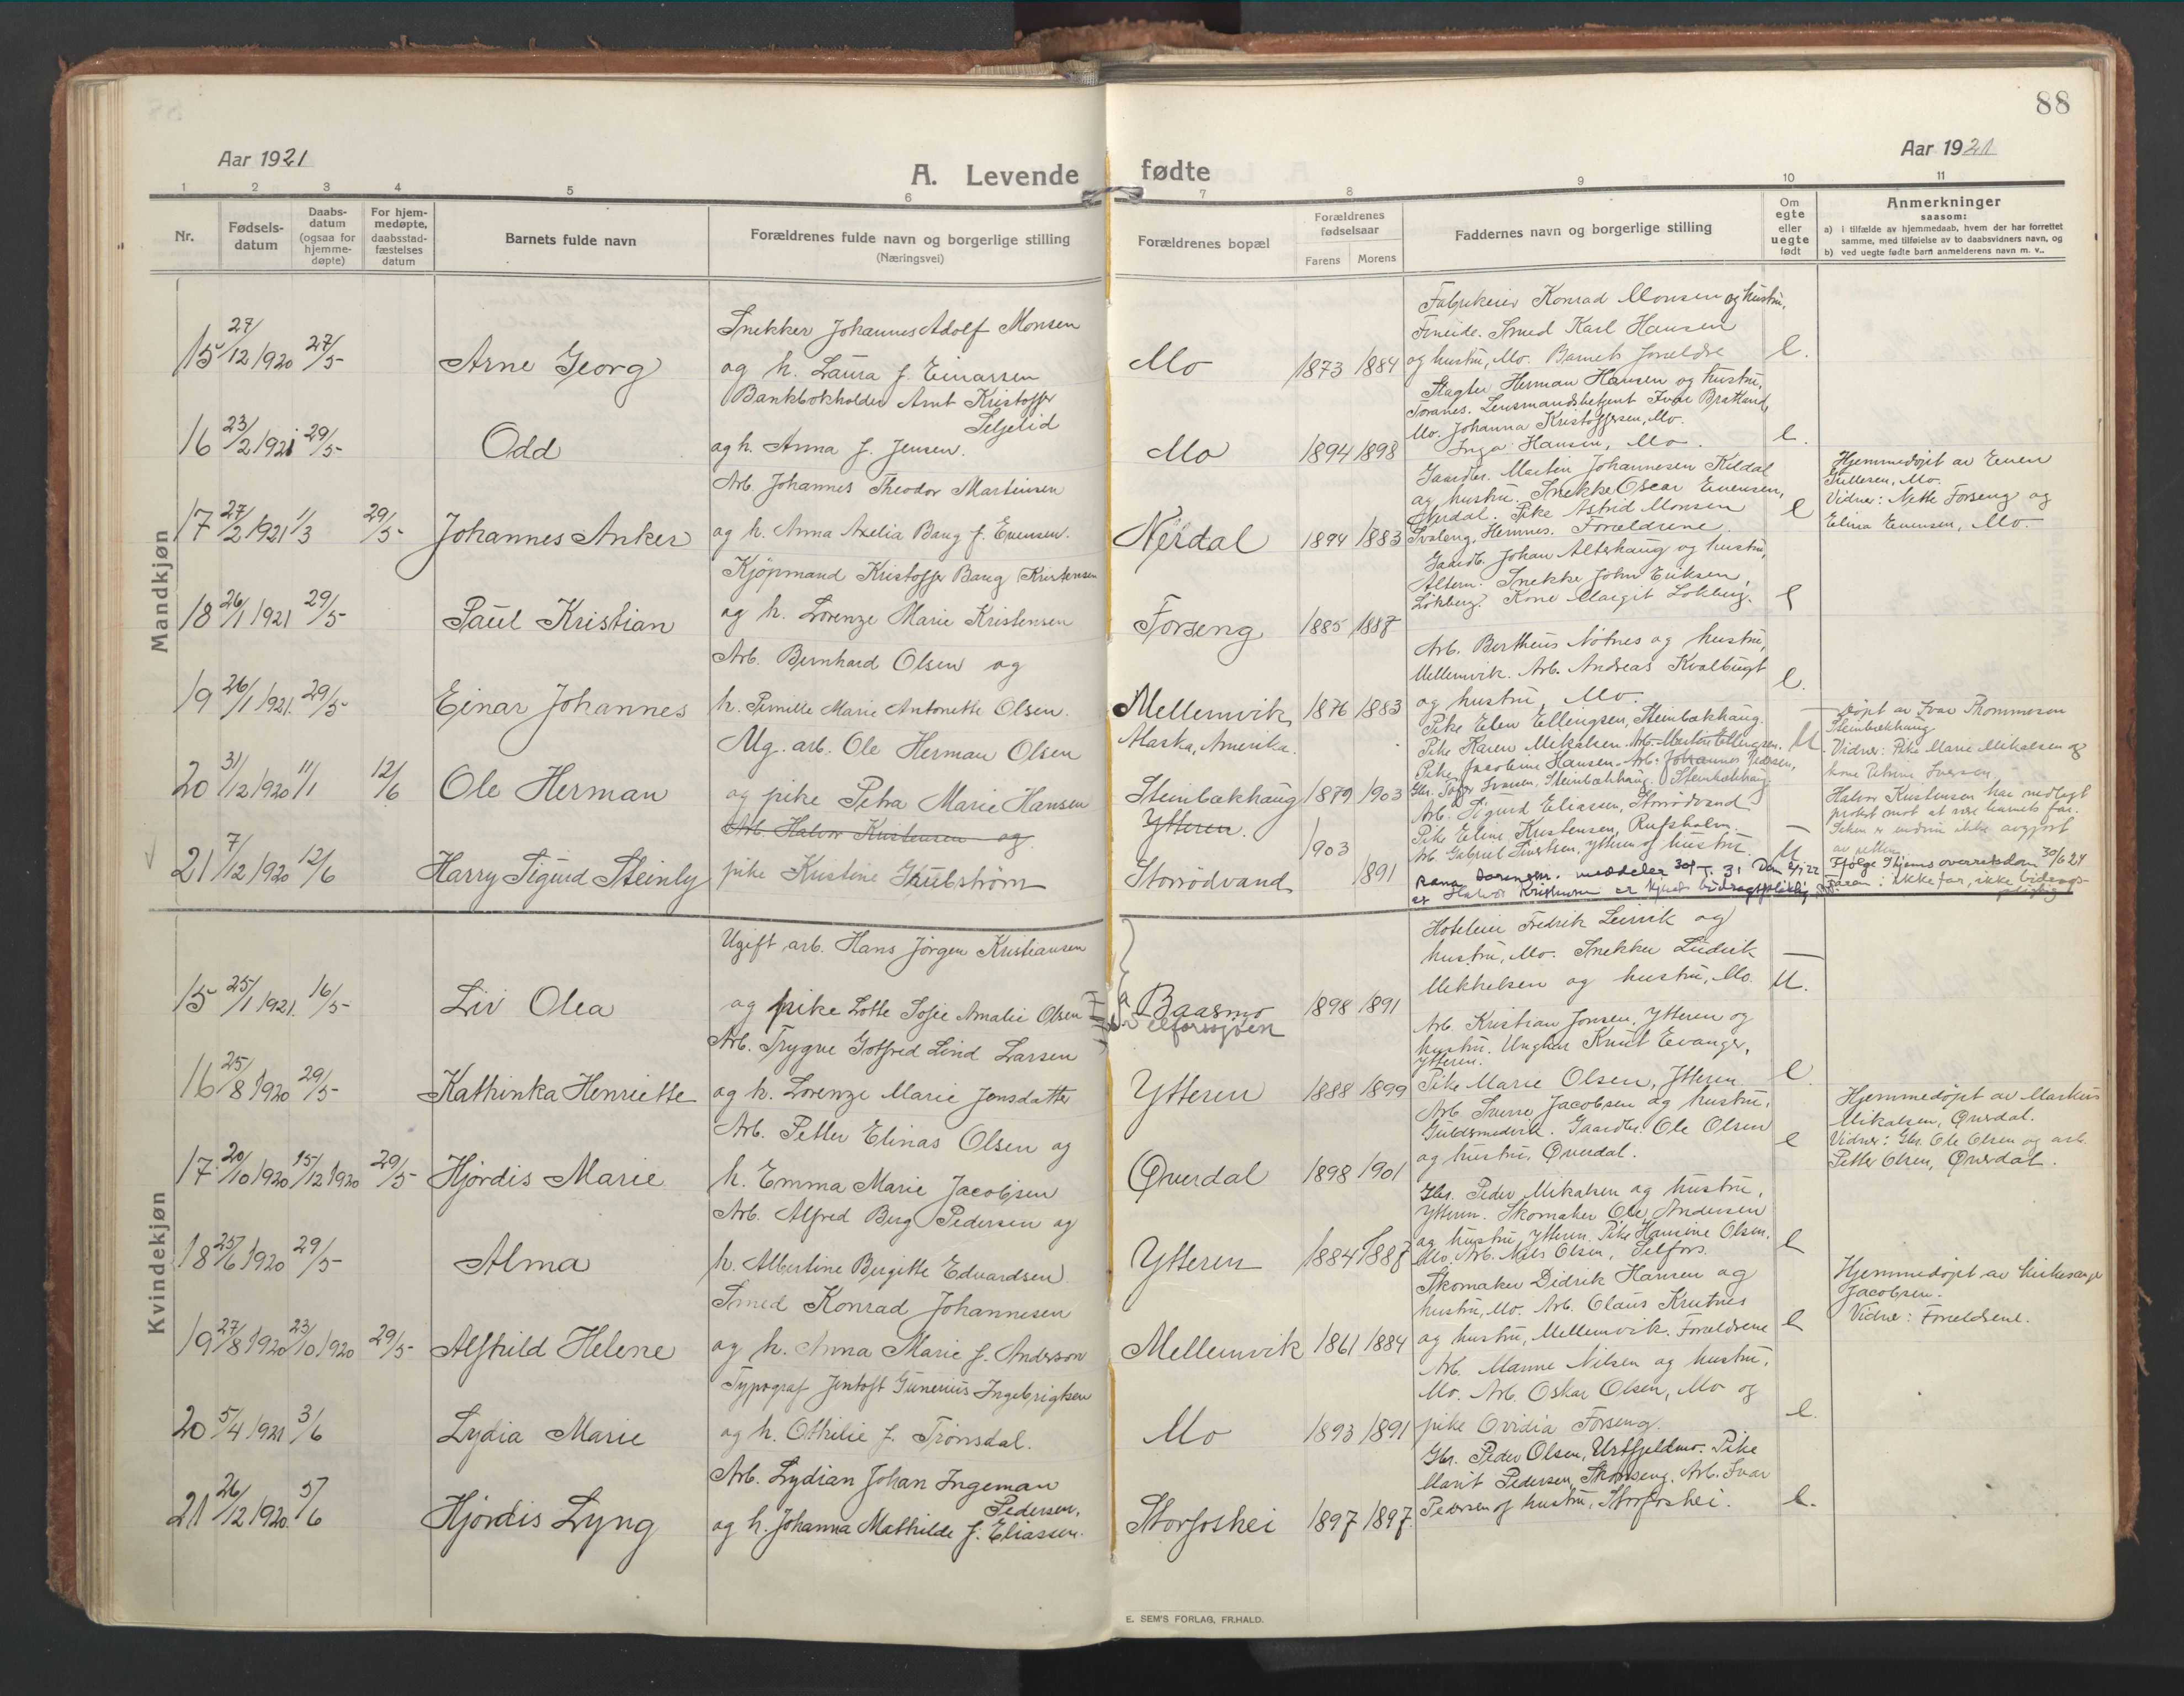 88
Aar 1921
Aar 1921
A. Levende fødte
1 2 3 4 5 6 7 8 9 10 11
Nr.
Fødsels-
datum
Daabs-
datum
(ogsaa for
hjemme-
døpte)
For hjem-
medøpte,
daabsstad-
fæstelses
datum
Barnets fulde navn
Forældrenes fulde navn og borgerlige stilling
(Næringsvei)
Forældrenes bopæl
Forældrenes
fødselsaar
Farens Morens
Faddernes navn og borgerlige stilling
Om
egte
eller
uegte
født
Anmerkninger
saasom:
a) i tilfælde av hjemmedaab, hvem der har forrettet
samme, med tilføielse av to daabsvidners navn, og
b) ved uegte fødte barn anmelderens navn m. v..
Mandkjøn
15 27/12 1920 27/5
Arne Georg
Snekker Johannes Adolf Monsen
og h. Laura f. Einarsen
Mo
1873 1884
Fabrikeier Konrad Monsen og hustru,
Fineide. Smed Karl Hansen
og hustru, Mo. Barnets forældre
e.
16 23/2 1921 29/5
Odd
Bankbokholder Arnt Kristoffer
Seljelid
og h. Anna f. Jensen.
Mo
1894 1898
Slagter Herman Hansen og hustru,
Toranes. Lensmandsbetjent Ivar Bratland,
Mo. Johanna Kristoffersen, Mo.
Inga Hansen, Mo.
e.
17 27/2 1921 1/3 29/5
Johannes Anker
Arb. Johannes Theodor Martinsen
og h. Anna Axelia Baug f. Evensen.
Nerdal
1894 1883
Gaardbr. Martin Johannesen Kildal
og hustru. Snekker Oscar Evensen,
Nerdal. Pike Astrid Monsen
Svaleng, Hemnes. Forældrene
e
Hjemmedøpt av Even
Gullesen, Mo.
Vidner: Nette Forseng og
Elina Evensen, Mo.
18 26/1 1921 29/5
Paul Kristian
Kjøpmand Kristoffer Baug Kristensen
og h. Lorenze Marie Kristensen
Forseng
1885 1887
Gaardb. Johan Alterhaug og hustru,
Altern. Snekker John Eriksen,
Løkberg. Kone Margit Løkberg.
e
19 26/1 1921. 29/5
Einar Johannes
Arb. Bernhard Olsen og
h. Pernille Marie Antonette Olsen.
Mellemvik
1876 1883
Arb. Bertheus Nøtnes og hustru,
Mellemvik. Arb. Andreas Kvalbugt
og hustru, Mo.
e.
20 31/12 1920 11/1 12/6
Ole Herman
Ug. arb. Ole Herman Olsen
og pike Petra Marie Hansen
Alaska, Amerika.
Steinbækhaug
1879 1903
Pike Elen Ellingsen, Steinbækhaug.
Pike Karen Mikalsen. Arb. Martin Ellingsen.
Pike Jacobine Hansen. Arb. Johannes Pedersen,
U
Døpt av Ivar Thommesen
Steinbækhaug
Vidner: Pike Marie Mikalsen og
kone Petrine Iversen
21 7/12 1920 12/6
Harry Sigurd Steinly
Arb. Halvor Kristensen og
pike Kristine Grubstrøm
Ytteren.
Storrødvand
1903
1891
Arb. Sigurd Eliasen, Storrødvand
Pike Eline Kristensen, Rufsholm.
Arb. Gabriel Sivertsen, Ytteren og hustru.
U
Halvor Kristensen har nedlagt
protest mot at være barnets far.
Saken er endnu ikke avgjort
av retten
Ifølge Hjemsoverretsdom 30/6 24
ikke far, ikke bidrags-
pliktig
Kvindekjøn
15 25/1 1921. 16/5
Liv Olea
Ugift arb. Hans Jörgen Kristiansen
og pike Lotte Sofie Amalie Olsen
Baasmo
1898 1891
Hoteleier Fredrik Leirvik og
hustru, Mo. Snekker Ludvik
Mikkelsen og hustru, Mo.
U.
16 25/8 1920 29/5
Kathinka Henriette
Arb. Trygve Gotfred Lind Larsen
og h. Lorenze Marie Jensdatter
Ytteren
1888 1899
Arb. Kristian Jonsen, Ytteren og
hustru. Ungkar Knut Evanger,
Ytteren.
Pike Marie Olsen, Ytteren
e.
17 20/10 1920 15/12 1920 29/5
Hjørdis Marie
Arb. Petter Elinas Olsen og
h. Emma Marie Jacobsen
Øverdal
1898 1901
Arb. Sverre Jacobsen og hustru,
Guldsmedvik. Gaardbr. Ole Olsen
og hustru, Øverdal.
e
Hjemmedøpt av Markus
Mikalsen, Øverdal.
Vidner: Gbr. Ole Olsen og arb.
Petter Olsen, Øverdal.
18 25/6 1920 29/5
Alma
Arb. Alfred Berg Pedersen og
h. Albertine Bergitte Edvardsen
Ytteren
1884 1887
Gbr. Peder Mikalsen og hustru,
Ytteren. Skomaker Ole Andersen
og hustru, Ytteren. Pike Hansine Olsen,
Mo. Arb. Nils Olsen, Selfors.
e
19 27/8 1920 23/10 1920 29/5
Alfhild Helene
Smed Konrad Johannesen
og h. Anna Marie f. Anderson
Mellemvik
1861 1884
Skomaker Didrik Hansen og
hustru, Mo. Arb. Olaus Krutnes
og hustru, Mellemvik. Forældrene
e
Hjemmedøpt av kirkesanger
Jacobsen.
Vidner: Forældrene.
20 5/4 1921 3/6
Lydia Marie
Typograf Jentoft Gunerius Ingebrigtsen
og h. Othilie f. Trönsdal.
Mo
1893 1891
Arb. Manne Nilsen og hustru,
Mo. Arb. Oskar Olsen, Mo og
pike Ovidia Forseng.
e.
21 26/12 1920. 5/6
Hjördis Lyng
Arb. Lydian Johan Ingeman
Pedersen,
og h. Johanna Mathilde f. Eliassen.
Storfoshei
1897 1897
Gbr. Peder Olsen, Urtfjeldmo. Pike
Marit Pedersen, Skonseng. Arb. Ivar
Pedersen og hustru, Storfoshei.
e.
E. SEM'S FORLAG, FR.HALD.